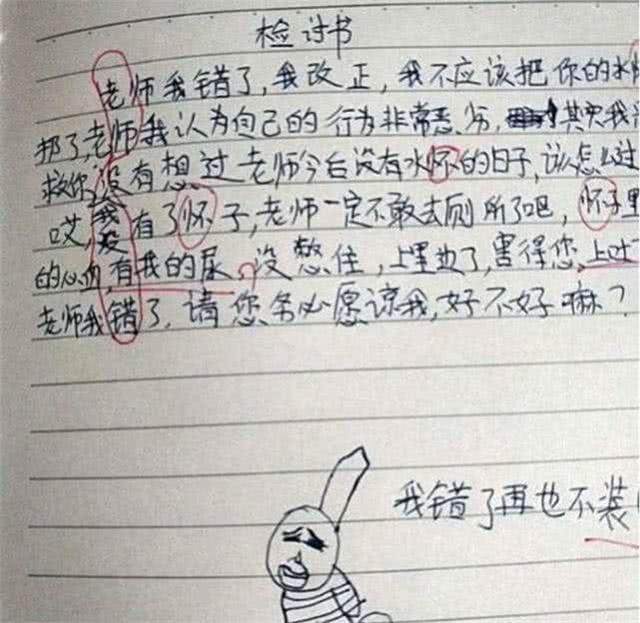 检讨书
老师我错了,我改正,我不应该把你的水
扔了,老师我认为自己的行为非常恶劣,其实我
救你,没有想过老师今后没有水怀的日子,该怎么过
哎,我没有了怀子,老师一定不敢去厕所了吧,怀子里
的心血,有我的尿,没憋住,上里边了,害得您,上吐
老师我错了,请您务必愿谅我,好不好嘛?
我错了再也不装